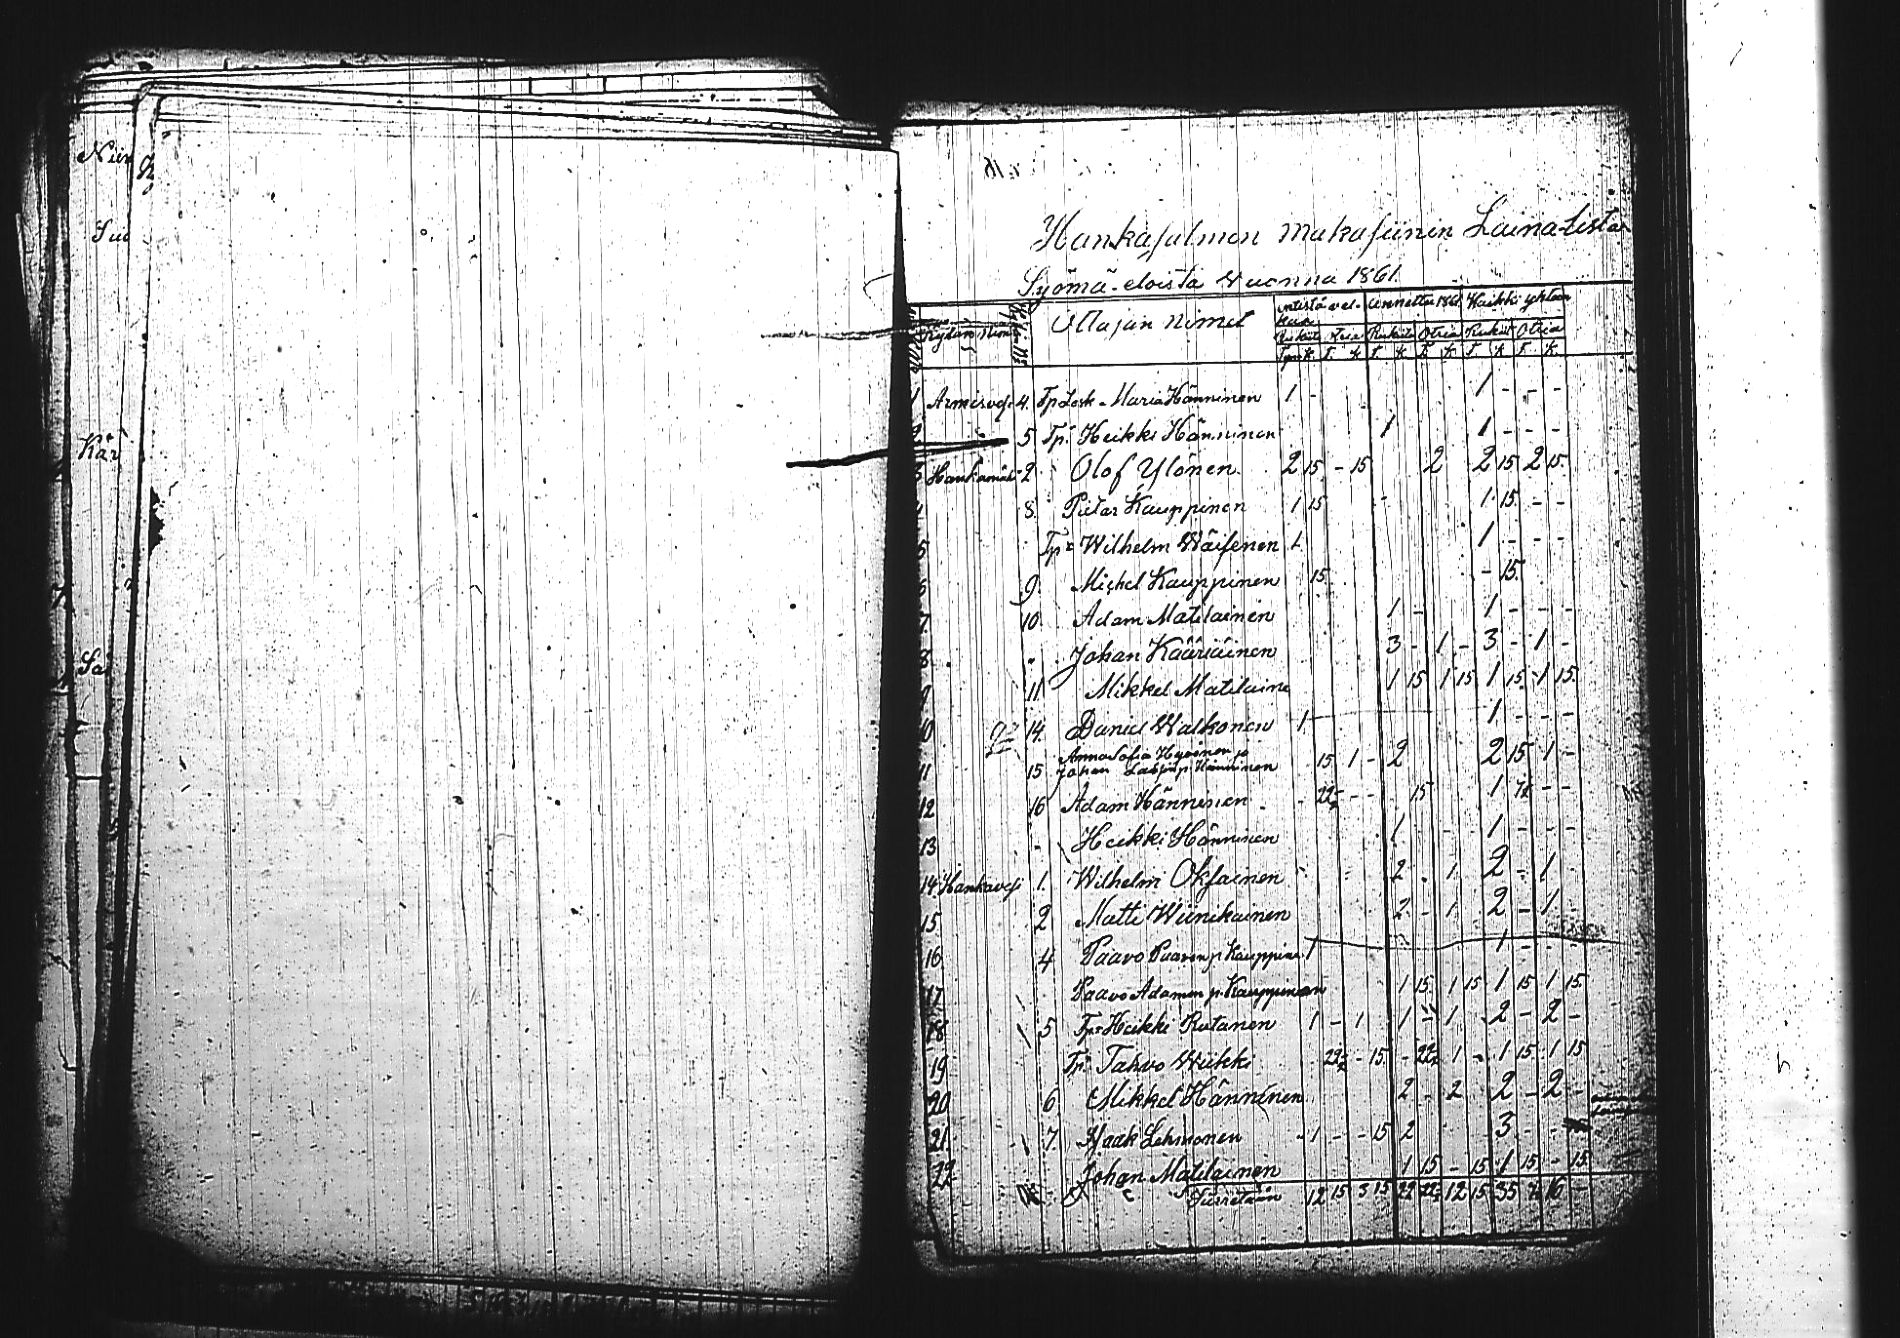 Niin
Suo
Kär
Sa
Hankasalmen Makasiinin Laina-lista
Syömä-eloista Vuonna 1861.
Kylän Nimi Ottajan Nimet entistä vel- annettu 1861 Kaikki yhtän
Rukiita Otria Rukiita Otria Rukiit Otria
T. K. T. K. T. K. T. K. T. K.
1 Armisvesi 4. Tp Lesk. Maria Hänninen 1 - 1 - - -
2 5 Tp. Heikki Hänninen 1 1 - - -
3 Hankamäki 2 Olof Ylönen 2 15 - 15 2 2 15 2 15
4 8. Pietar Kauppinen 1 15 1 15 - -
5 Tp. Wilhelm Wäisenen 1 1 - - -
6 9. Michel Kauppinen 15 - 15
7 10. Adam Matilainen 1 - 1 - - -
8 " Johan Kääriäinen 3 - 1 - 3 - 1 -
9 11 Mikkel Matilaine 1 15 1 15 1 15 1 15
10 14. Daniel Walkonen 1 1 - - -
11 15 Anna Sofia Hyvönen ja
Johan Hänninen 15 1 - 2 2 15 1 -
12 16 Adam Hänninen - 22½ - - 15 1 7½ - -
13 - Heikki Hänninen 1 1 - - -
14. Hankavesi 1. Wilhelm Oksainen 2 - 1 2 - 1
15 2 Matti Wiinikainen 2 - 1 2 - 1
16 4 Paavo Paavon p. Kauppine 1 1 - -
17 Paavo Adamin p. Kauppinen 1 15 1 15 1 15 1 15
18 5 Tp. Heikki Rutanen 1 - 1 1 - 1 - 2 - 2 -
19 Tp. Tahvo Wiikki 22½ - 15 - 22½ 1 - 1 15 1 15
20 6 Mikkel Hänninen 2 - 2 2 - 2 -
21 7. Isaak Lehmonen - 1 - - 15 2 3 - -
22 Johan Matilainen 1 15 - 15 1 15 - 15
Siirretään 12 15 3 15 22 22½ 12 15 35 7½ 16